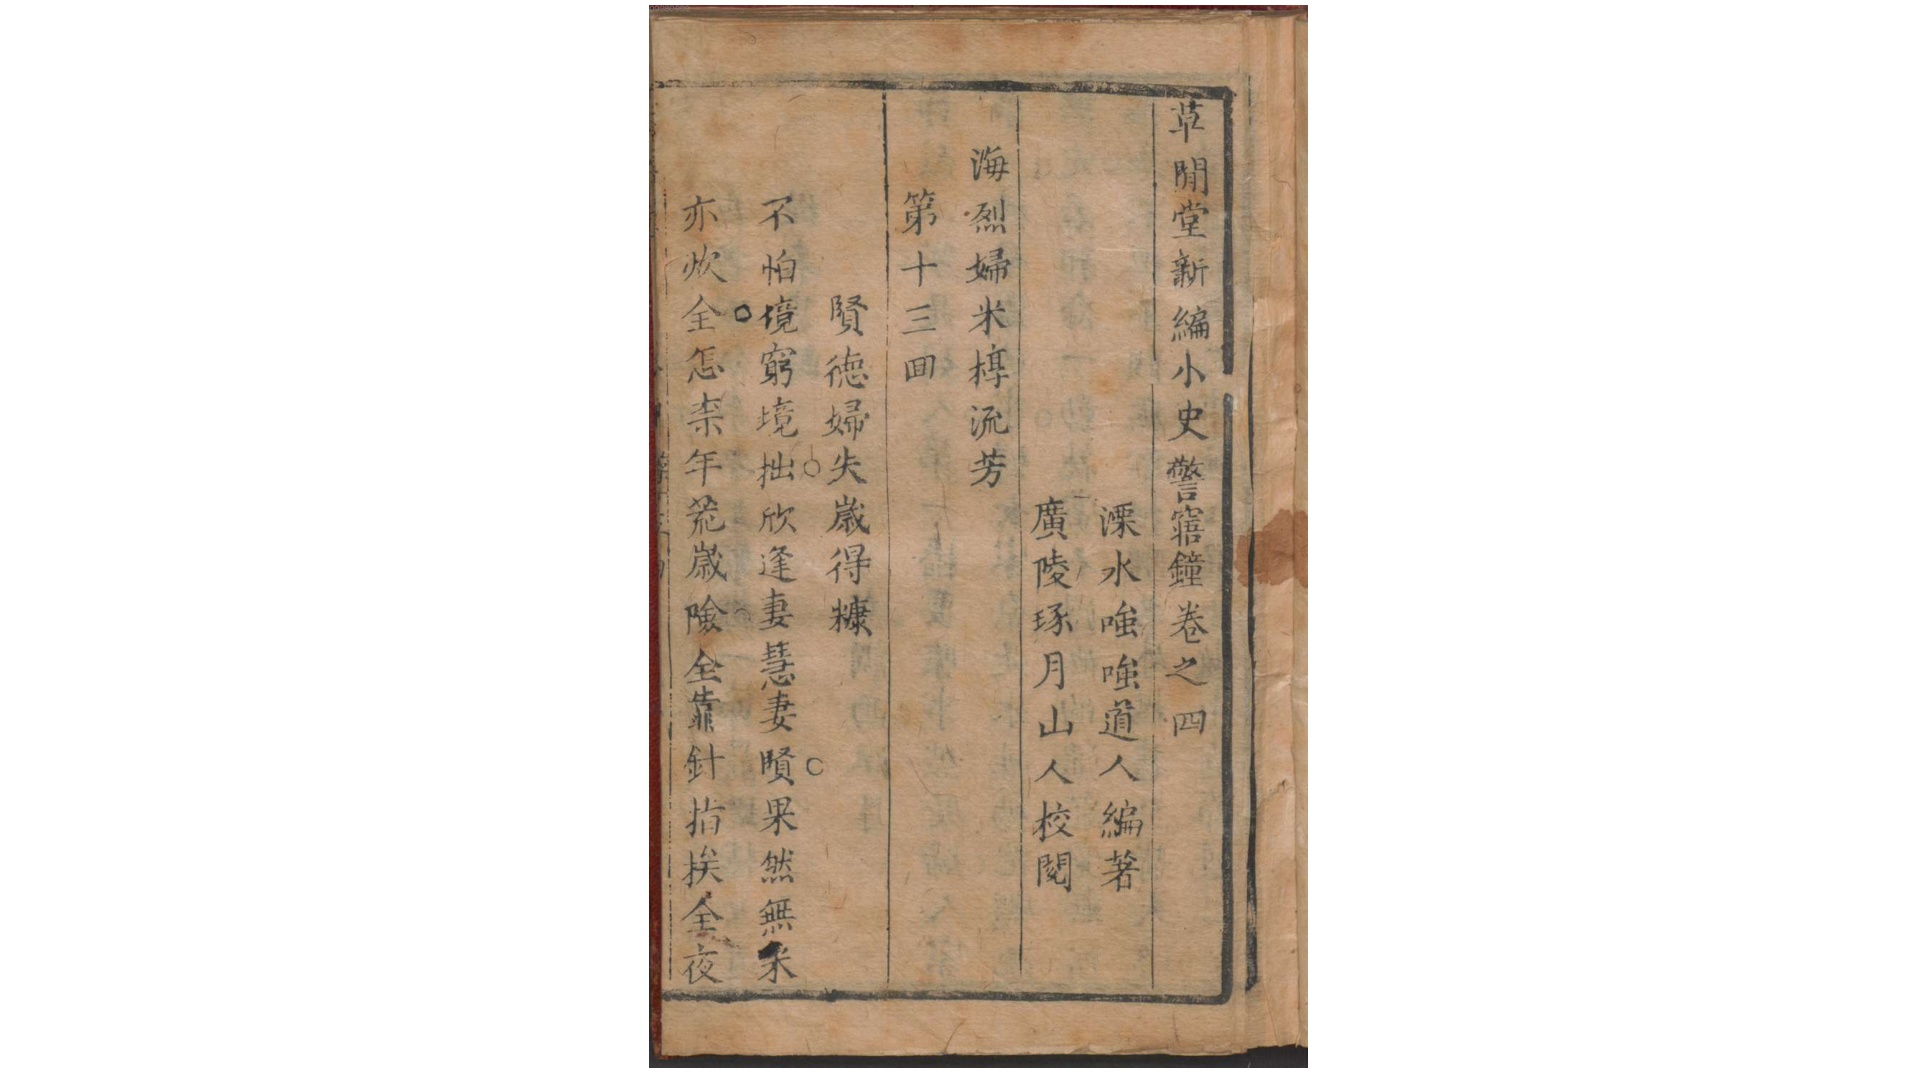 草閒堂新編小史警寤鐘卷之四
溧水嗤嗤道人編著
廣陵琢月山人校閱
海烈婦米椁流芳
第十三回
賢德婦失歲得糠
不怕境窮境拙欣逢妻慧妻賢果然無米
亦炊全怎柰年荒歲險全靠針指挨全夜